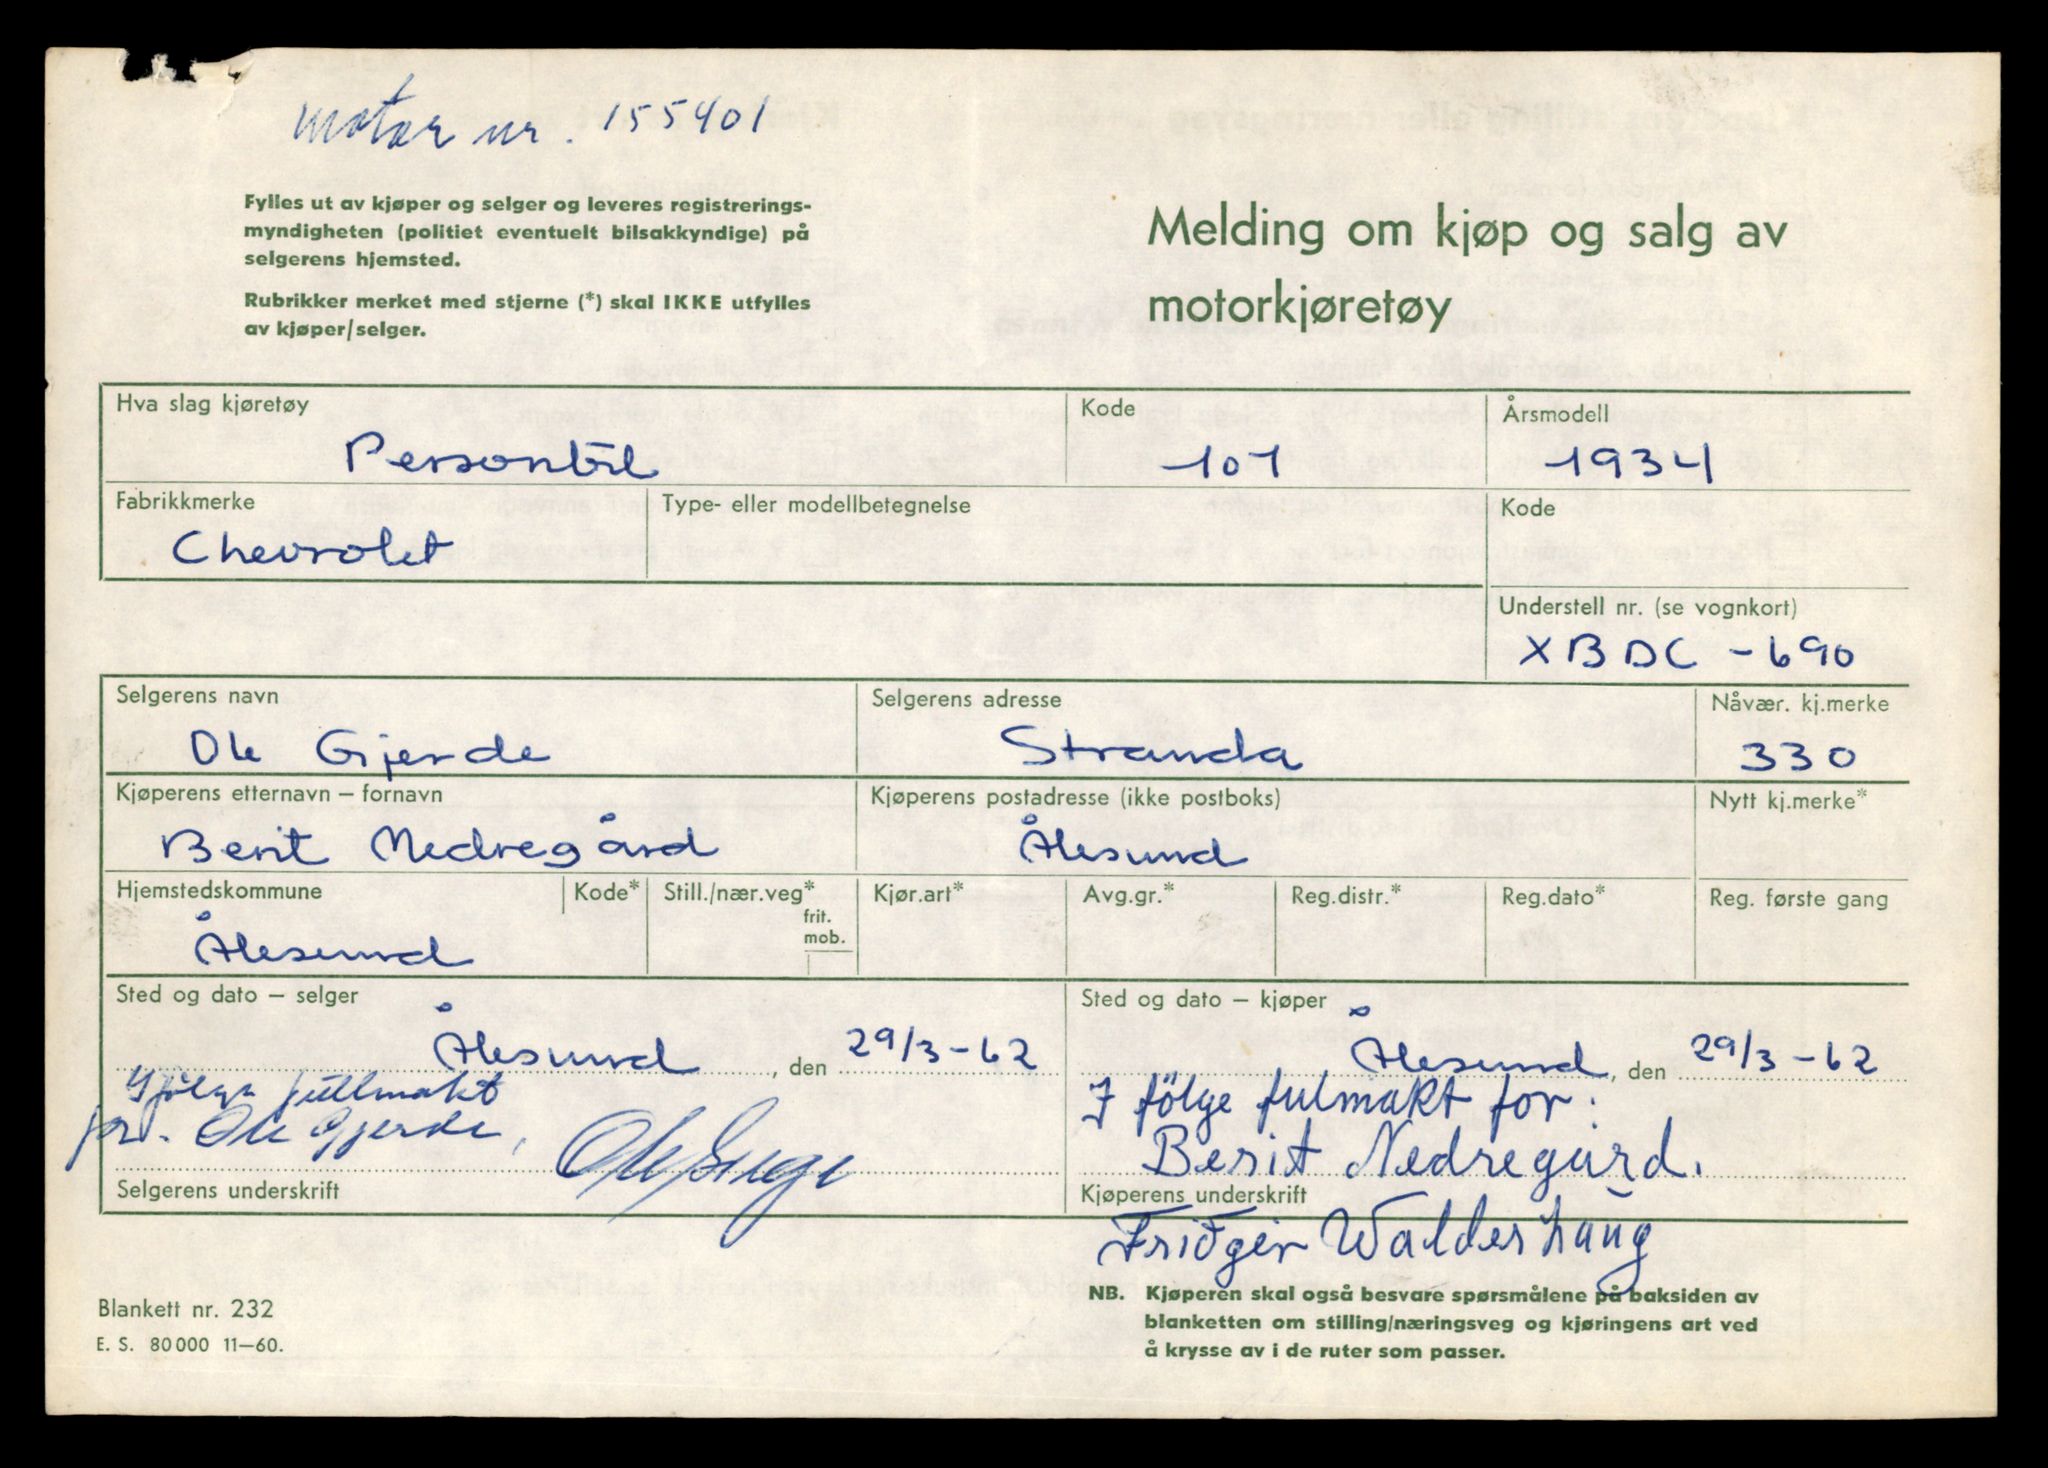 motor nr. 155401
Fylles ut av kjøper og selger og leveres registrerings-
myndigheten (politiet eventuelt bilsakkyndige) på
selgerens hjemsted.
Rubrikker merket med stjerne (*) skal IKKE utfylles
av kjøper/selger.
Melding om kjøp og salg av
motorkjøretøy
Hva slag kjøretøy
Personbil
Kode
101
Årsmodell
1934
Fabrikkmerke
Chevrolet
Type- eller modellbetegnelse
Kode
Understell nr. (se vognkort)
XBDC - 690
Selgerens navn
Ole Gjerde
Selgerens adresse
Stranda
Nåvær. kj.merke
330
Kjøperens etternavn – fornavn
Berit Nedregård
Kjøperens postadresse (ikke postboks)
Ålesund
Nytt kj.merke*
Hjemstedskommune
Ålesund
Kode*
Still./nær.veg*
frit.
mob.
Kjør.art*
Avg.gr.*
Reg.distr.*
Reg.dato*
Reg. første gang
Sted og dato – selger
Ålesund, den 29/3-62
Ifølge fullmakt
for. Ole Gjerde,
Selgerens underskrift
Sted og dato – kjøper
Ålesund, den 29/3-62
I følge fulmakt for:
Berit Nedregård.
Kjøperens underskrift
Fridgeir Walderhaug
NB. Kjøperen skal også besvare spørsmålene på baksiden av
blanketten om stilling/næringsveg og kjøringens art ved
å krysse av i de ruter som passer.
Blankett nr. 232
E. S. 80000 11–60.